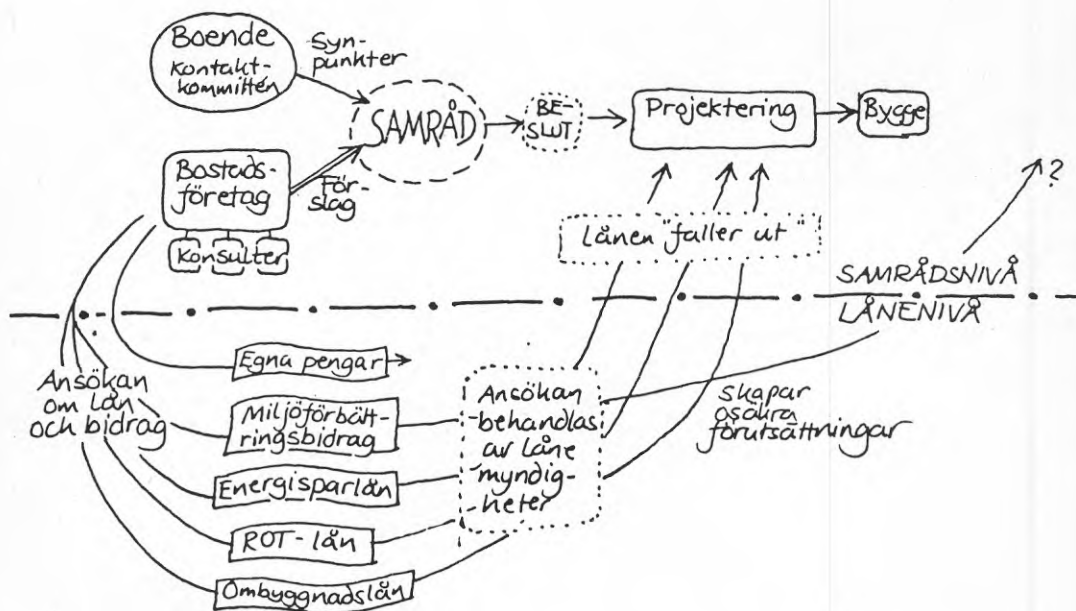 Boende
Kontakt-
kommittén
Syn-
punkter
SAMRÅD
BE-
SLUT
Projektering
Bygge
Bostads-
företag
För-
slag
Konsulter
Lånen "faller ut"
?
SAMRÅDSNIVÅ
LÅNENIVÅ
Ansökan
om lån
och bidrag
Egna pengar
Miljöförbätt-
ringsbidrag
Energisparlån
ROT-lån
Ombyggnadslån
Ansökan
behandlas
av låne
myndig-
heter
skapar
osäkra
förutsättningar